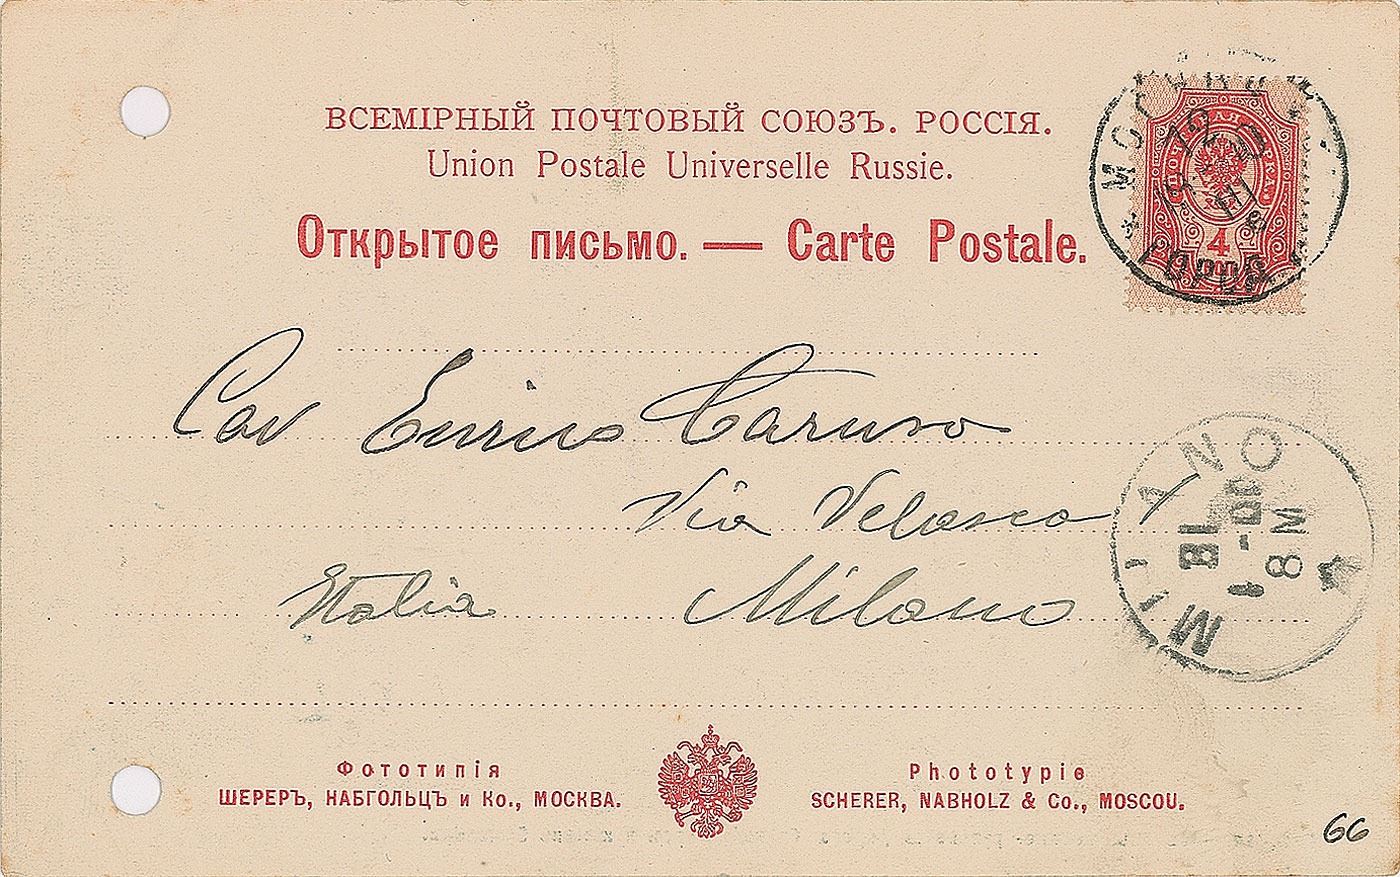 ВСЕМІРНЫЙ ПОЧТОВЫЙ СОЮЗЪ. РОССІЯ.
Union Postale Universelle Russie.
Открытое письмо. — Carte Postale.
4
Cav Enrico Caruso
Via Velasca
Italia Milano
MILANO
8 M
Фототипія
ШЕРЕРЪ, НАБГОЛЬЦЪ и Ко., МОСКВА.
Phototypie
SCHERER, NABHOLZ & Co., MOSCOU.
66